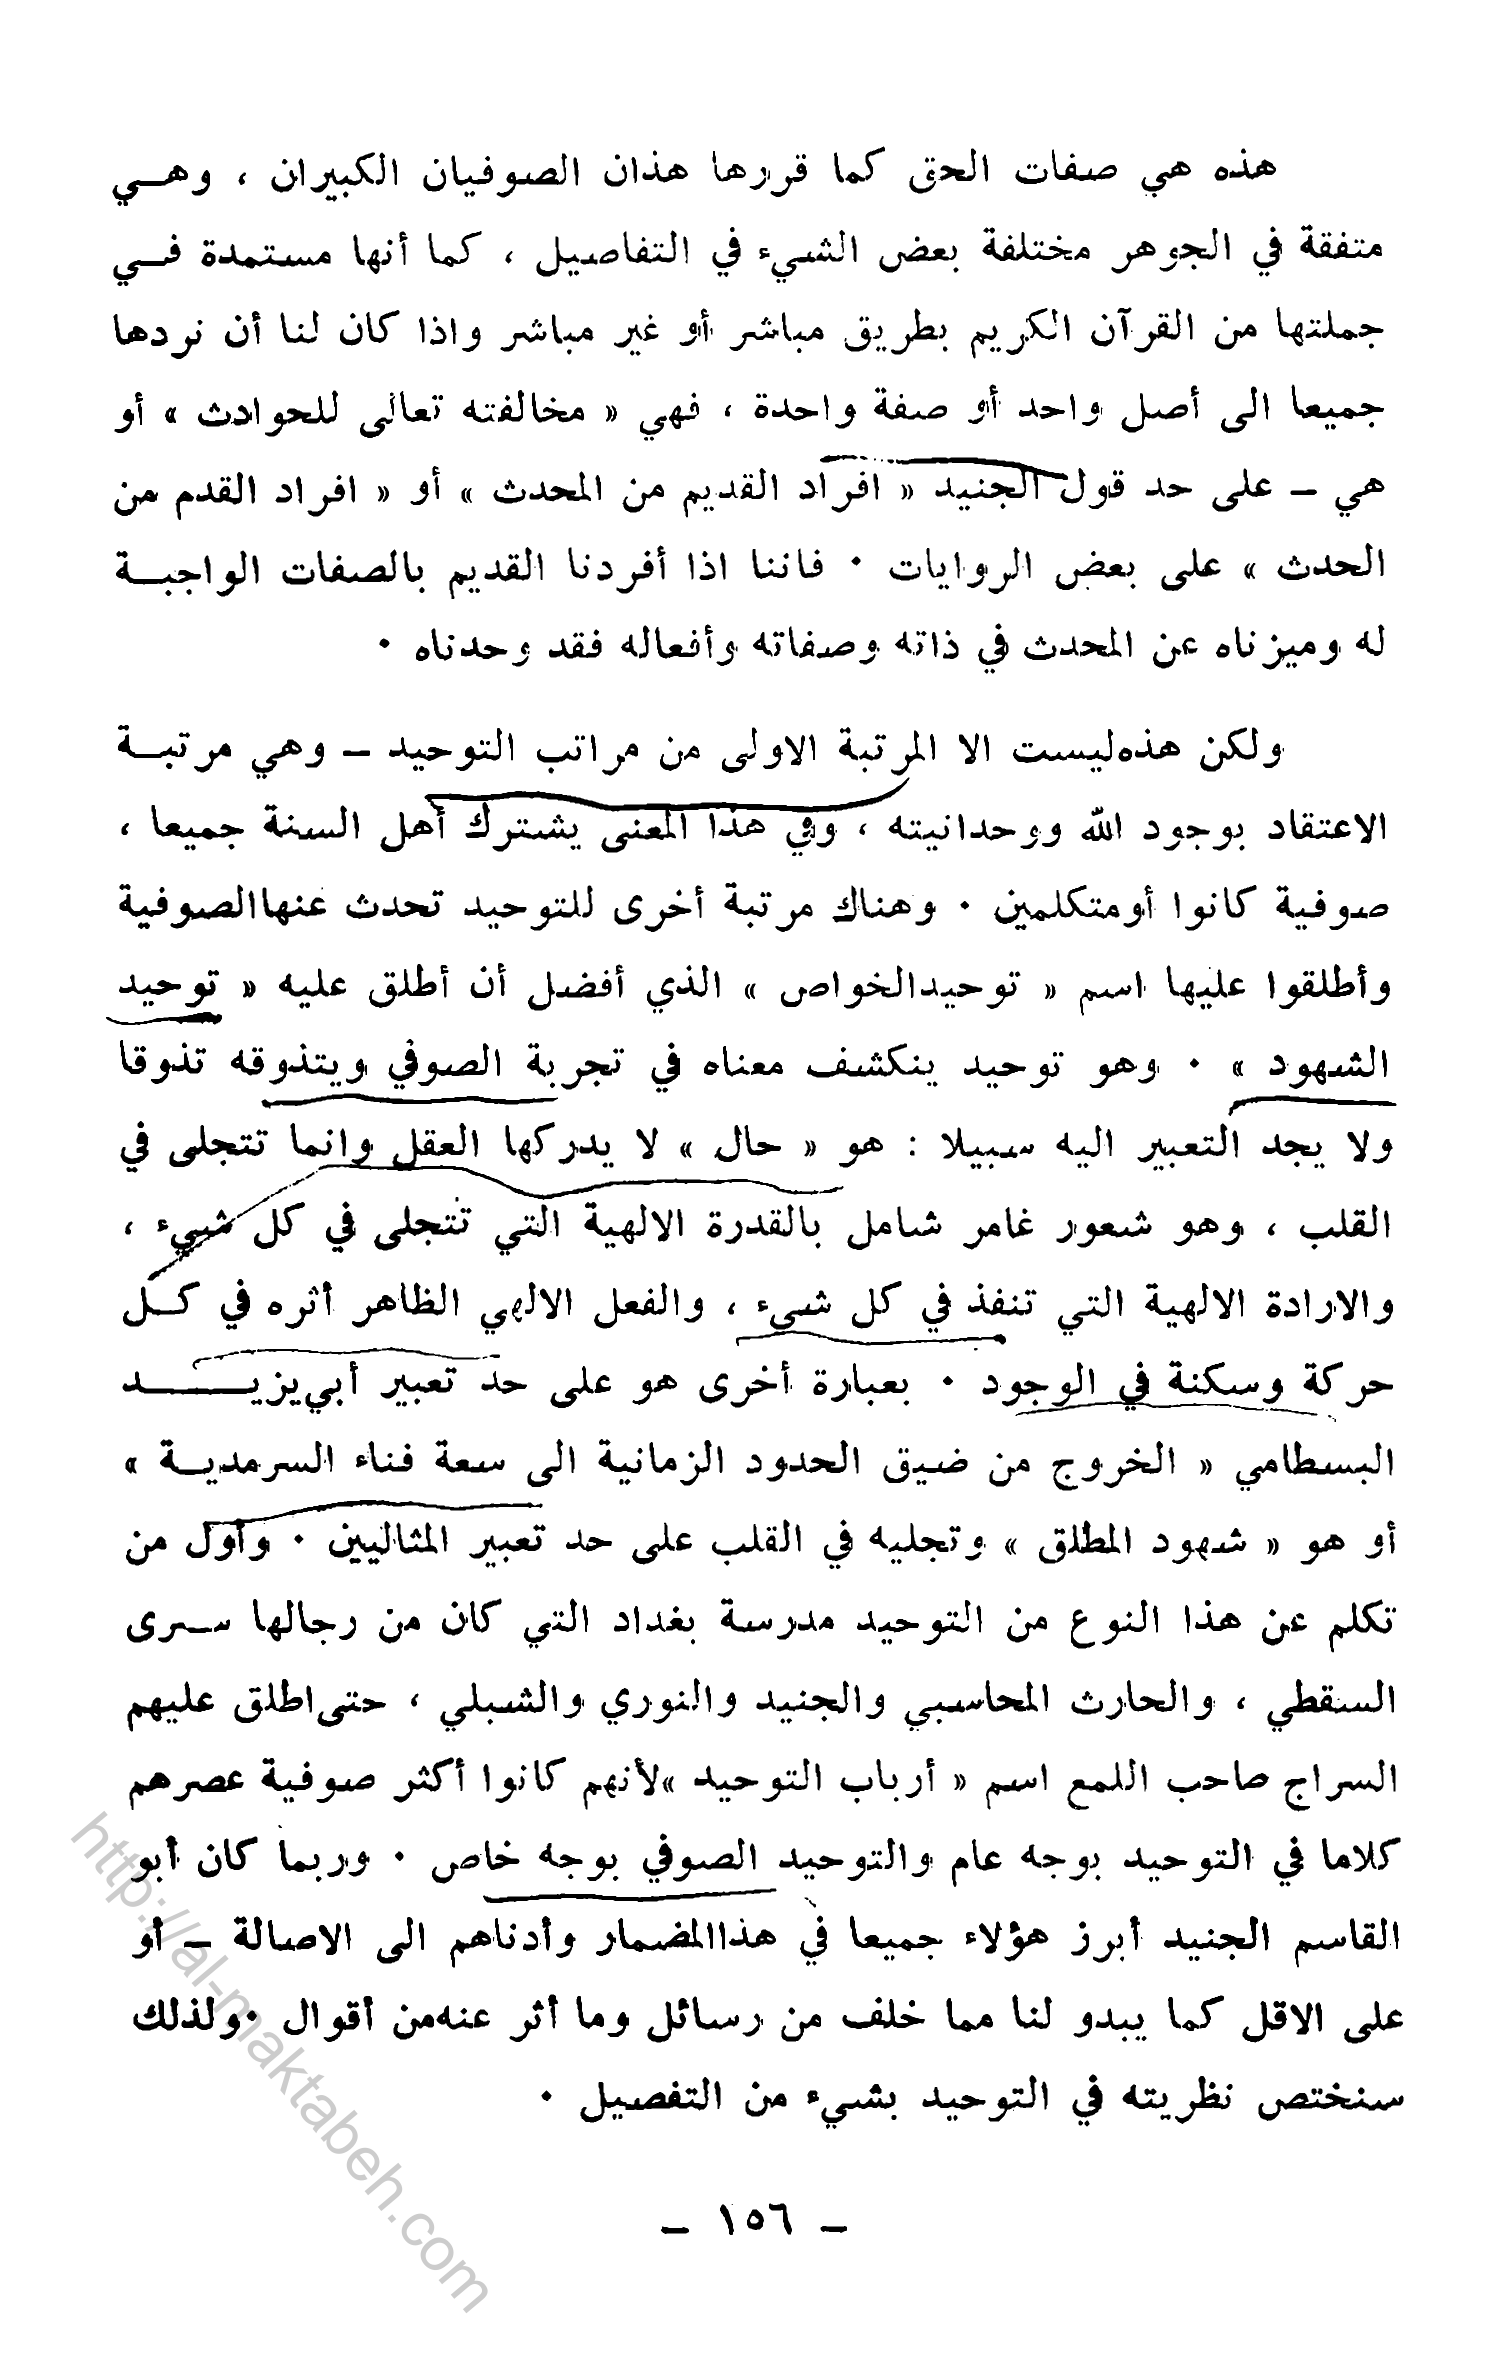 هذه هي صفات الحق كما قررها هذان الصوفيان الكبيران ، وهـــي
متفقة في الجوهر مختلفة بعض الشيء في التفاصيل ، كما أنها مستمدة فـــي
جملتها من القرآن الكريم بطريق مباشر أو غير مباشر واذا كان لنا أن نردها
جميعا الى أصل واحد أو صفة واحدة ، فهي « مخالفته تعالى للحوادث » أو
هي – على حد قول الجنيد « افراد القديم من المحدث » أو « افراد القدم من
الحدث » على بعض الروايات · فاننا اذا أفردنا القديم بالصفات الواجبـــة
له وميزناه عن المحدث في ذاته وصفاته وأفعاله فقد وحدناه ·
ولكن هذه ليست الا المرتبة الاولى من مراتب التوحيد – وهي مرتبـــة
الاعتقاد بوجود الله ووحدانيته ، وفي هذا المعنى يشترك أهل السنة جميعا ،
صوفية كانوا أو متكلمين · وهناك مرتبة أخرى للتوحيد تحدث عنها الصوفية
وأطلقوا عليها اسم « توحيد الخواص » الذي أفضل أن أطلق عليه « توحيد
الشهود » · وهو توحيد ينكشف معناه في تجربة الصوفي ويتذوقه تذوقا
ولا يجد التعبير اليه سبيلا : هو « حال » لا يدركها العقل وانما تتجلى في
القلب ، وهو شعور غامر شامل بالقدرة الالهية التي تتجلى في كل شيء ،
والارادة الالهية التي تنفذ في كل شيء ، والفعل الالهي الظاهر أثره في كـــل
حركة وسكنة في الوجود · بعبارة أخرى هو على حد تعبير أبي يزيـــــد
البسطامي « الخروج من ضيق الحدود الزمانية الى سعة فناء السرمديـــة »
أو هو « شهود المطلق » وتجليه في القلب على حد تعبير المثاليين · وأول من
تكلم عن هذا النوع من التوحيد مدرسة بغداد التي كان من رجالها ســرى
السقطي ، والحارث المحاسبي والجنيد والنوري والشبلي ، حتى اطلق عليهم
السراج صاحب اللمع اسم « أرباب التوحيد » لأنهم كانوا أكثر صوفية عصرهم
كلاما في التوحيد بوجه عام والتوحيد الصوفي بوجه خاص · وربما كان أبو
القاسم الجنيد أبرز هؤلاء جميعا في هذا المضمار وأدناهم الى الاصالة – أو
على الاقل كما يبدو لنا مما خلف من رسائل وما أثر عنه من أقوال · ولذلك
سنختص نظريته في التوحيد بشيء من التفصيل ·
– ١٥٦ –
http://al-maktabeh.com